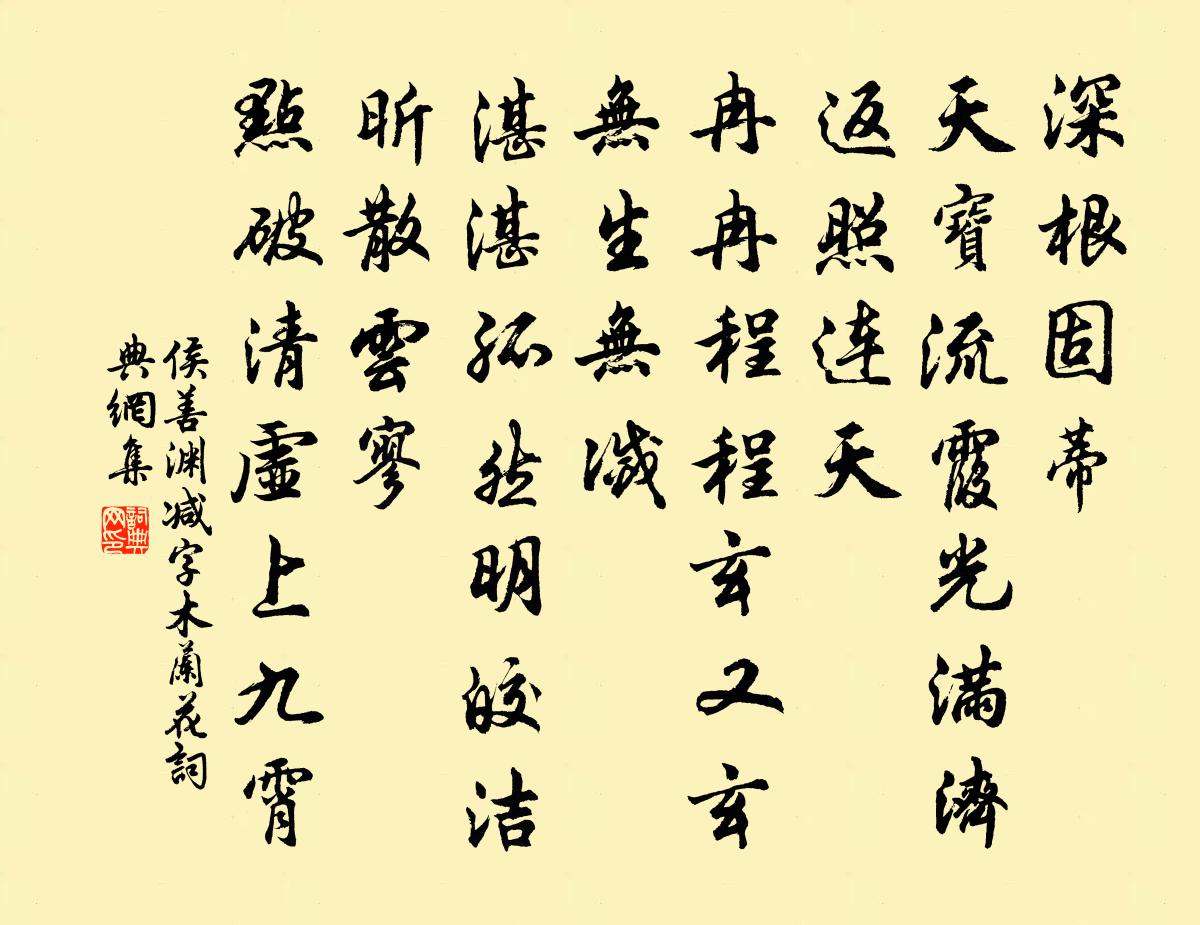 深根固蒂
天寶流霞光滿濟
返照連天
冉冉程程玄又玄
無生無滅
湛湛孤然明皎洁
昕散雲寥
點破清虛上九霄
侯善渊减字木蘭花詞
典網集
詞典
网印